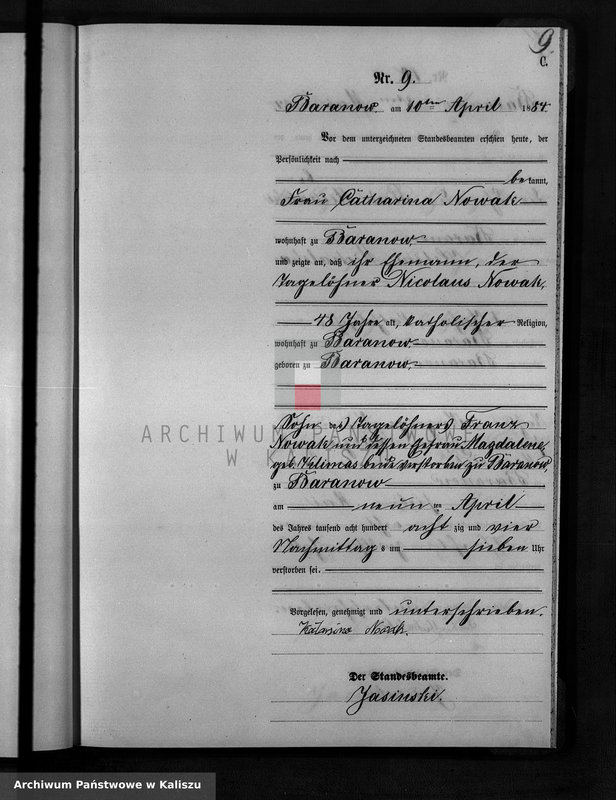 9
C.
Nr. 9.
Baranow am 10ten April 1884
Vor dem unterzeichneten Standesbeamten erschien heute, der
Persönlichkeit nach
bekannt,
Frau Catharina Nowak
wohnhaft zu Baranow
und zeigte an, daß ihr Ehemann, der
Tagelöhner Nicolaus Nowak,
48 Jahre alt, katholischer Religion,
wohnhaft zu Baranow
geboren zu Baranow
Sohn des Tagelöhners Franz
Nowak und dessen Ehefrau Magdalene,
geb. Klimas beide verstorben zu Baranow,
zu Baranow
am neun ten April
des Jahres tausend acht hundert acht zig und vier
Nachmittag s um sieben Uhr
verstorben sei.
Vorgelesen, genehmigt und unterschrieben.
Katarzina Nowak.
Der Standesbeamte.
Jasinski.
ARCHIWUM PAŃSTWOWE
W KALISZU
Archiwum Państwowe w Kaliszu